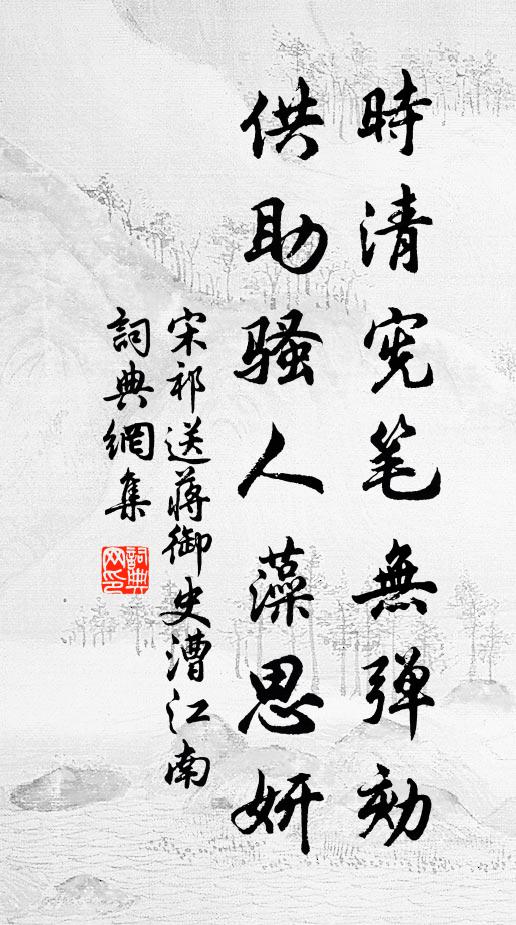 時清宪笔無弹劾
供助骚人藻思妍
宋祁送蔣御史漕江南
詞典網集
詞典网印